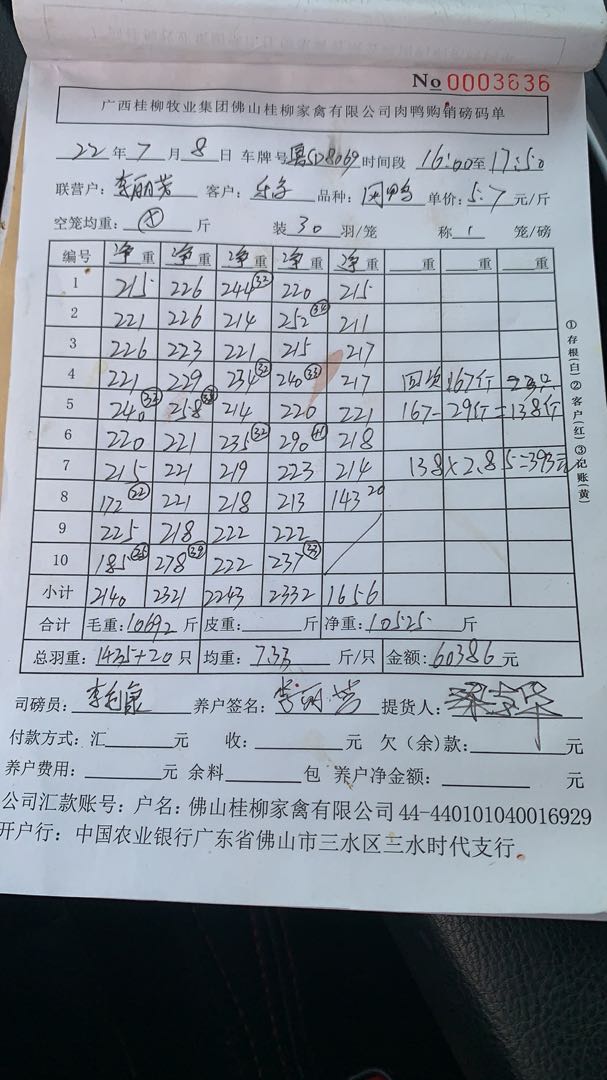 No 0003636
广西桂柳牧业集团佛山桂柳家禽有限公司肉鸭购销磅码单
22 年 7 月 8 日 车牌号 粤SD8069 时间段 16:00至17:50
联营户: 李丽芳 客户: 品种: 鸭 单价: 5.7 元/斤
空笼均重: 斤 装 30 羽/笼 称 1 笼/磅
编号 净重 净重 净重 净重 净重 重 重 重
1 215 226 244(32) 220 215
2 221 226 214 252(34) 211
3 226 223 221 215 217
4 221 229 234(32) 240(33) 217 167斤
5 240 258 214 220 221 167-29斤=138斤
6 220 221 235(32) 290(41) 218
7 215 221 219 223 214 138×2.85=393元
8 172(22) 221 218 213 143 20
9 225 218 222 222
10 185(25) 278(39) 222 237(33)
小计 2140 2321 2243 2332 1656
合计 毛重: 10692 斤 皮重: 斤 净重: 10525 斤
总羽重: 1435+20 只 均重: 7.33 斤/只 金额: 60386 元
司磅员: 养户签名: 李丽芳 提货人:
付款方式: 汇 元 收: 元 欠(余)款: 元
养户费用: 元 余料 包 养户净金额: 元
公司汇款账号: 户名: 佛山桂柳家禽有限公司 44-440101040016929
开户行: 中国农业银行广东省佛山市三水区三水时代支行。
①存根(白)②客户(红)③记账(黄)